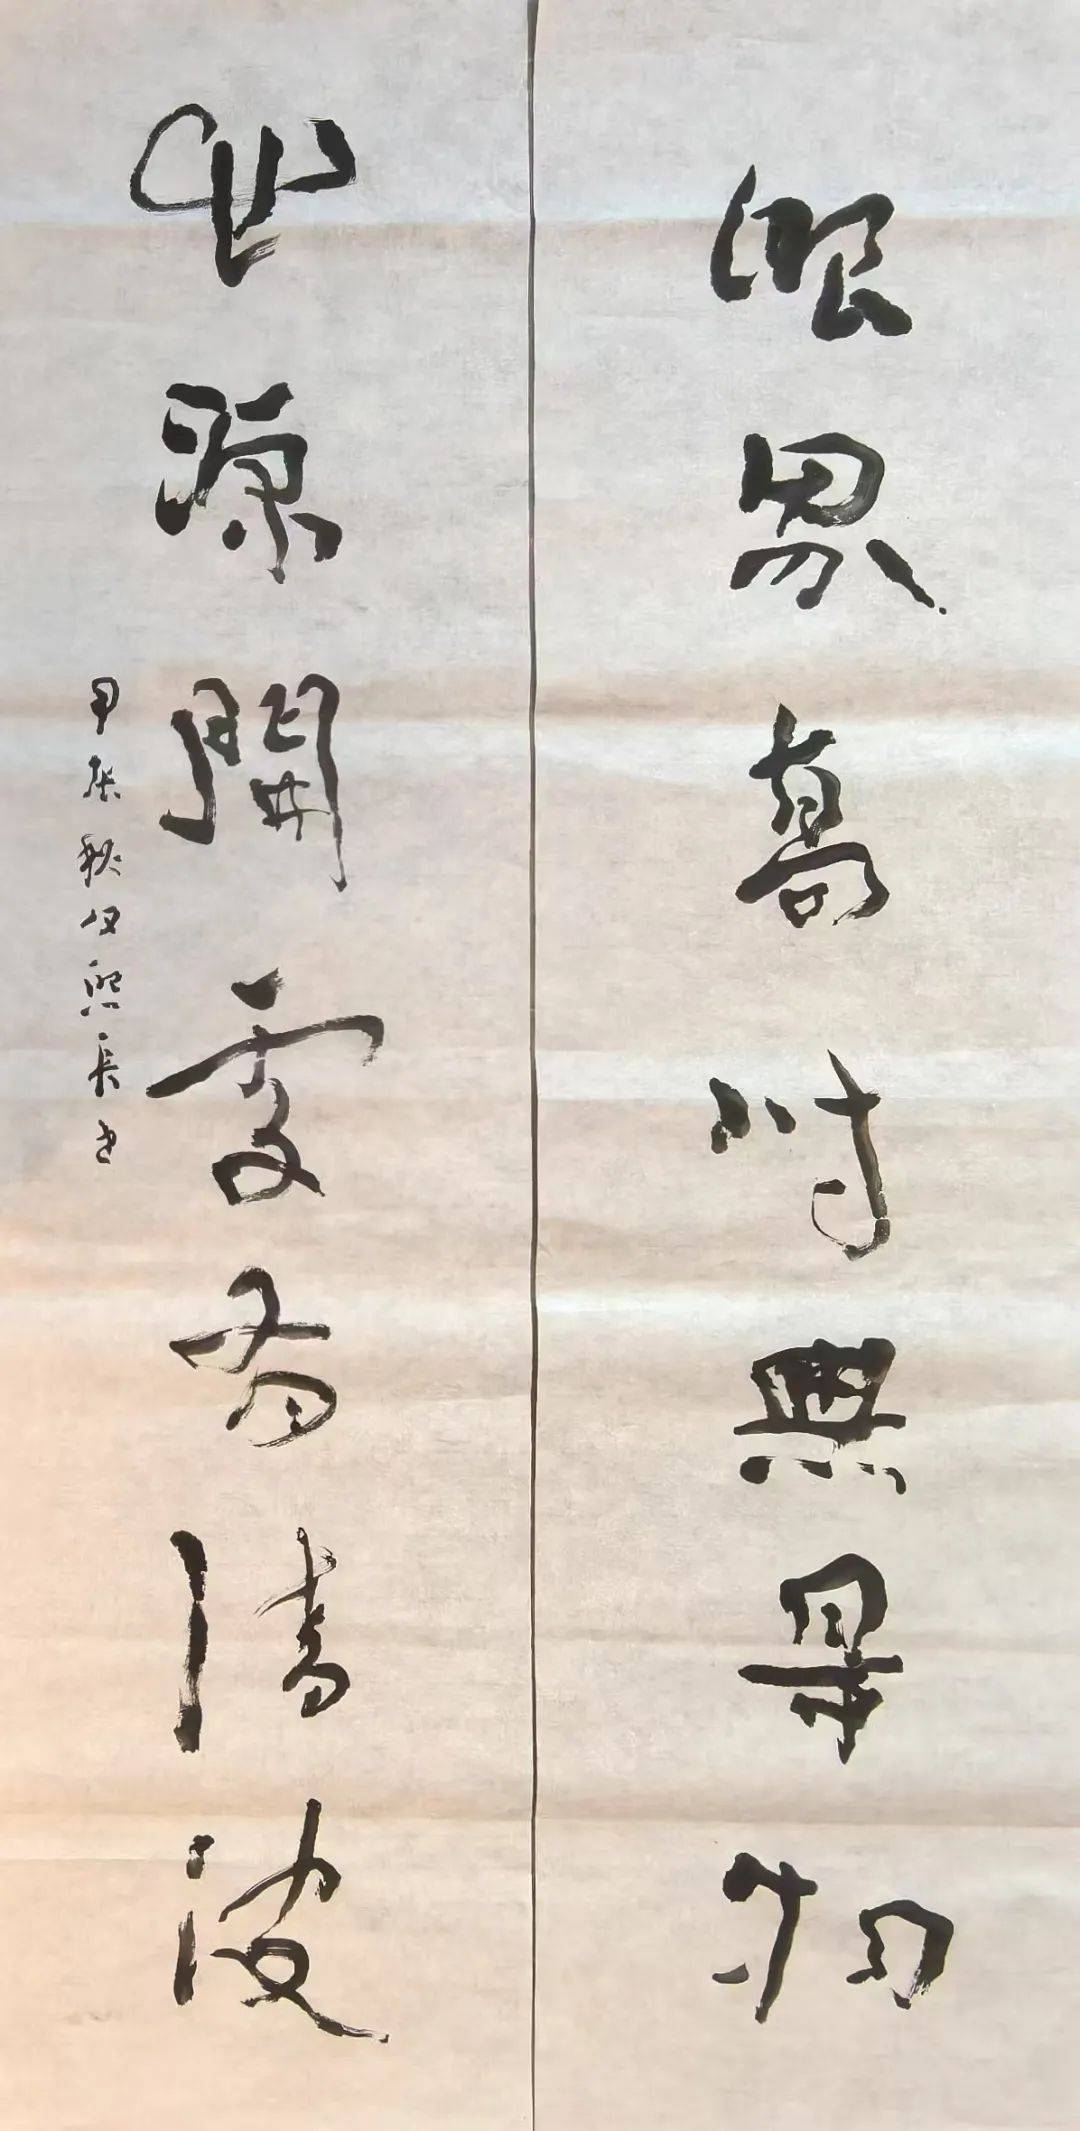 眼界高時無异物
心源開處有清波
甲辰秋熙長书